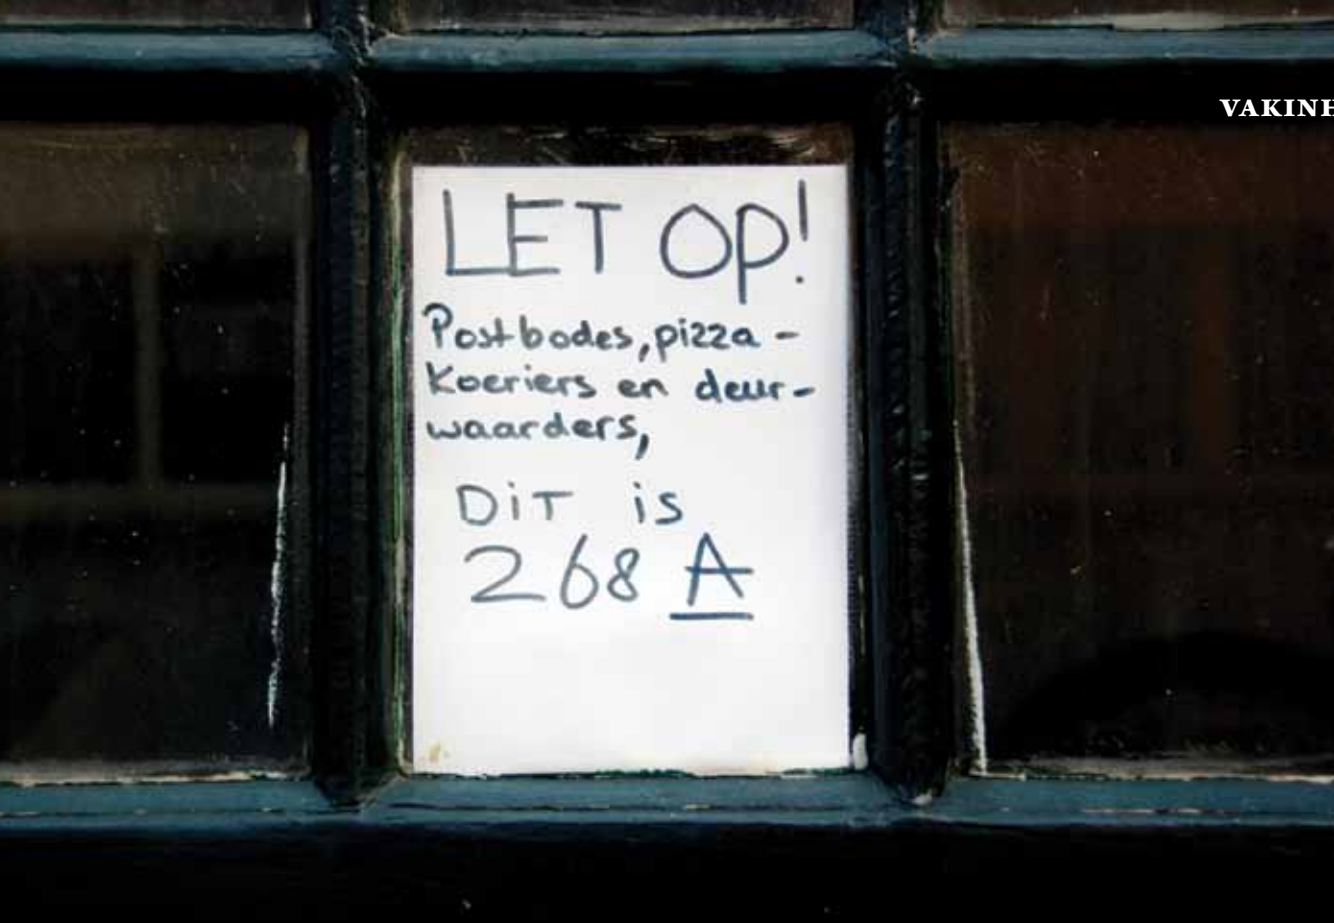 VAKINH
LET OP!
Postbodes, pizza -
Koeriers en deur-
waarders,
DiT is
268 A